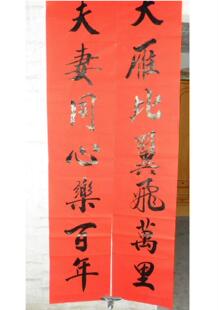 大雁比翼飛萬里
夫妻同心樂百年